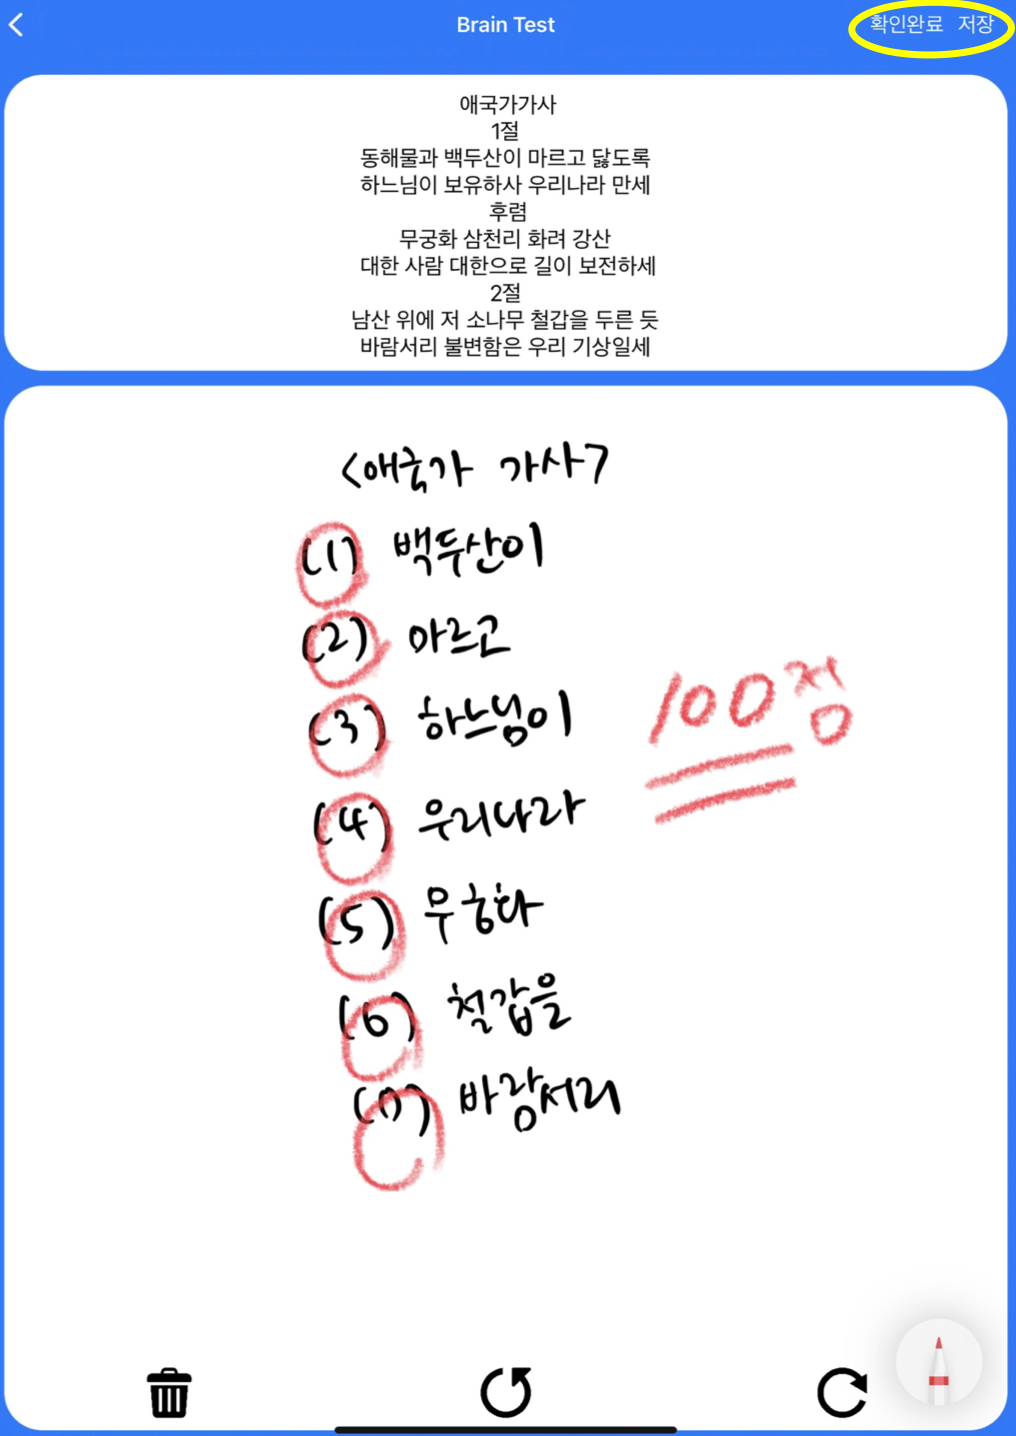 Brain Test
확인완료 저장
애국가가사
1절
동해물과 백두산이 마르고 닳도록
하느님이 보유하사 우리나라 만세
후렴
무궁화 삼천리 화려 강산
대한 사람 대한으로 길이 보전하세
2절
남산 위에 저 소나무 철갑을 두른 듯
바람서리 불변함은 우리 기상일세
<애국가 가사>
(1) 백두산이
(2) 마르고
(3) 하느님이
(4) 우리나라
(5)
(6) 철갑을
(7) 바람서리
100점